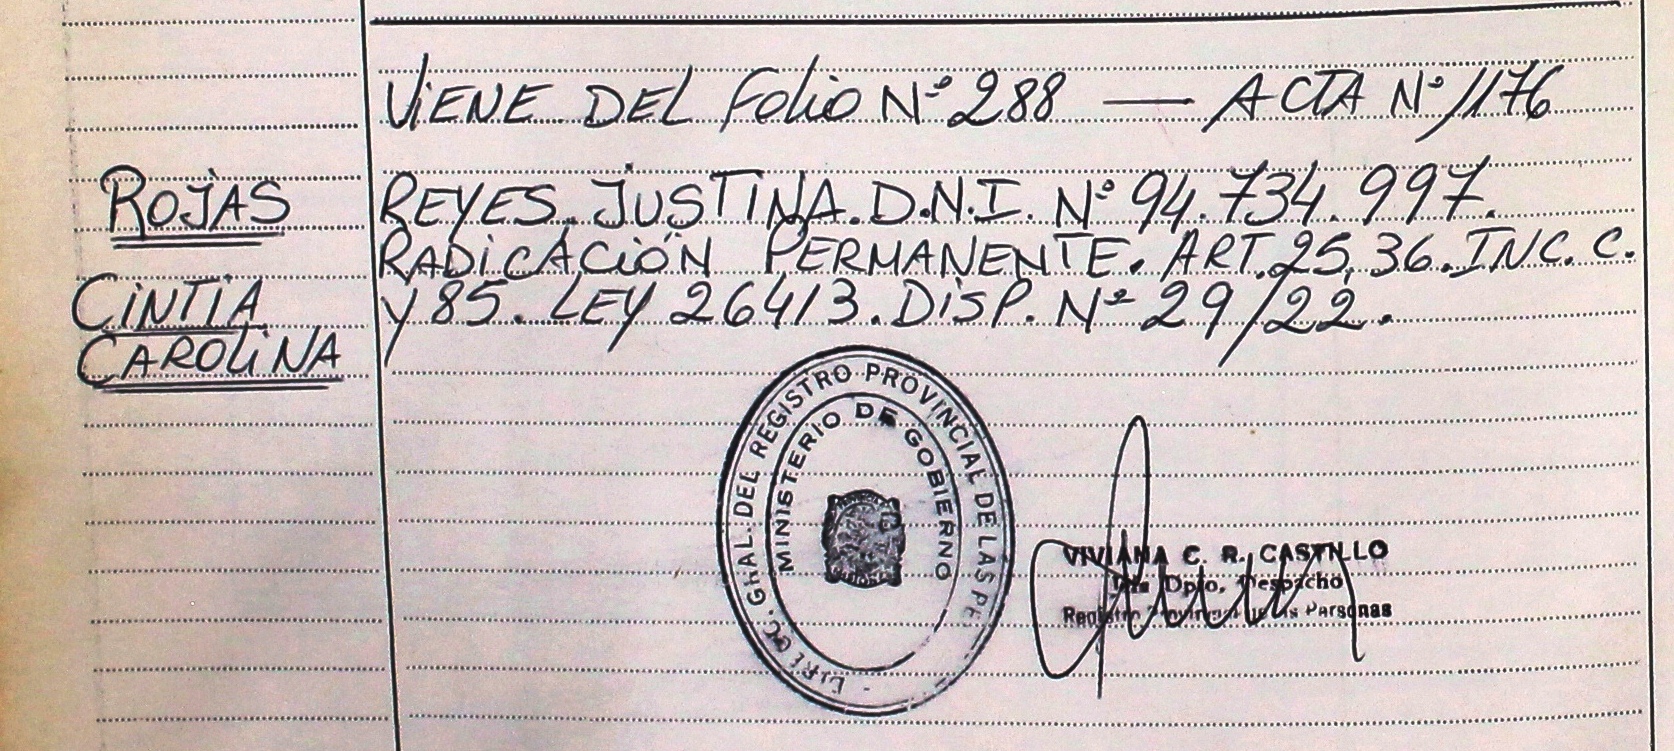 VIENE DEL FOLIO Nº 288 — ACTA Nº 1176
ROJAS
CINTIA
CAROLINA
REYES. JUSTINA. D.N.I. Nº 94.734.997.
RADICACIÓN PERMANENTE. ART. 25, 36. INC. C.
Y 85. LEY 26413. DISP. Nº 29/22.
GRAL. DEL REGISTRO PROVINCIAL DE LAS PE
MINISTERIO DE GOBIERNO
VIVIANA C. R. CASTILLO
Dpto. Despacho
Registro Provincial de las Personas